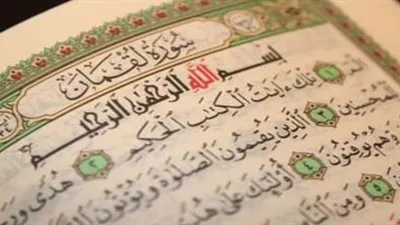 سُورَةُ لُقْمَانَ
بِسْمِ اللَّهِ الرَّحْمَٰنِ الرَّحِيمِ
١ تِلْكَ ءَايَٰتُ الْكِتَٰبِ الْحَكِيمِ ٢ هُدًى
لِلْمُحْسِنِينَ ٣ الَّذِينَ يُقِيمُونَ الصَّلَوٰةَ وَيُؤْتُونَ
هُمْ يُوقِنُونَ ٤ أُولَٰئِكَ عَلَىٰ
٥ وَمِنَ